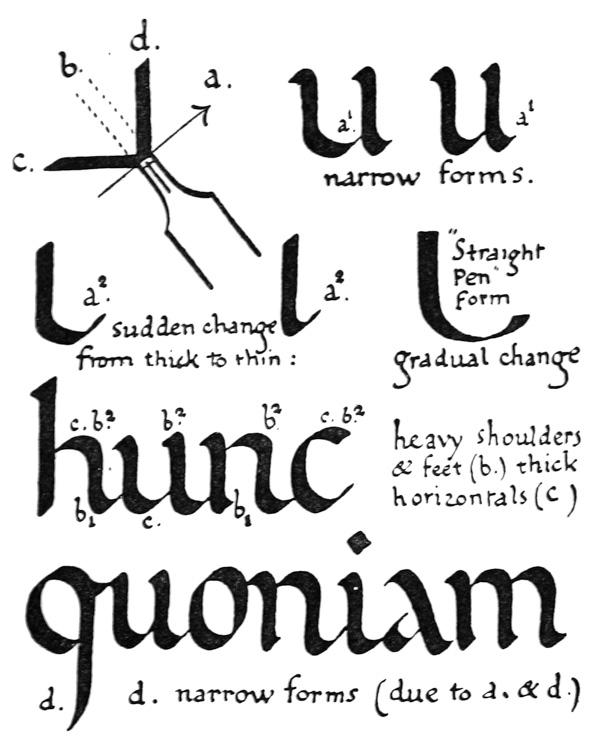 d.
b.
a.
c.
u u
a¹.
a¹
narrow forms.
a².
a².
"Straight
Pen"
form
sudden change
from thick to thin :
gradual change
hunc
c. b.²
b.²
b.²
c. b.²
b₁
c.
b₁
heavy shoulders
& feet (b.) thick
horizontals (c)
quoniam
d.
d. narrow forms (due to a. & d.)